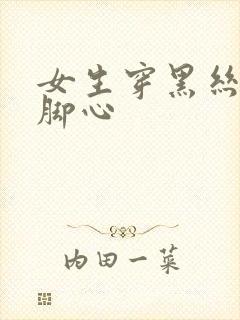 女生穿黑丝
脚心
内田一菜